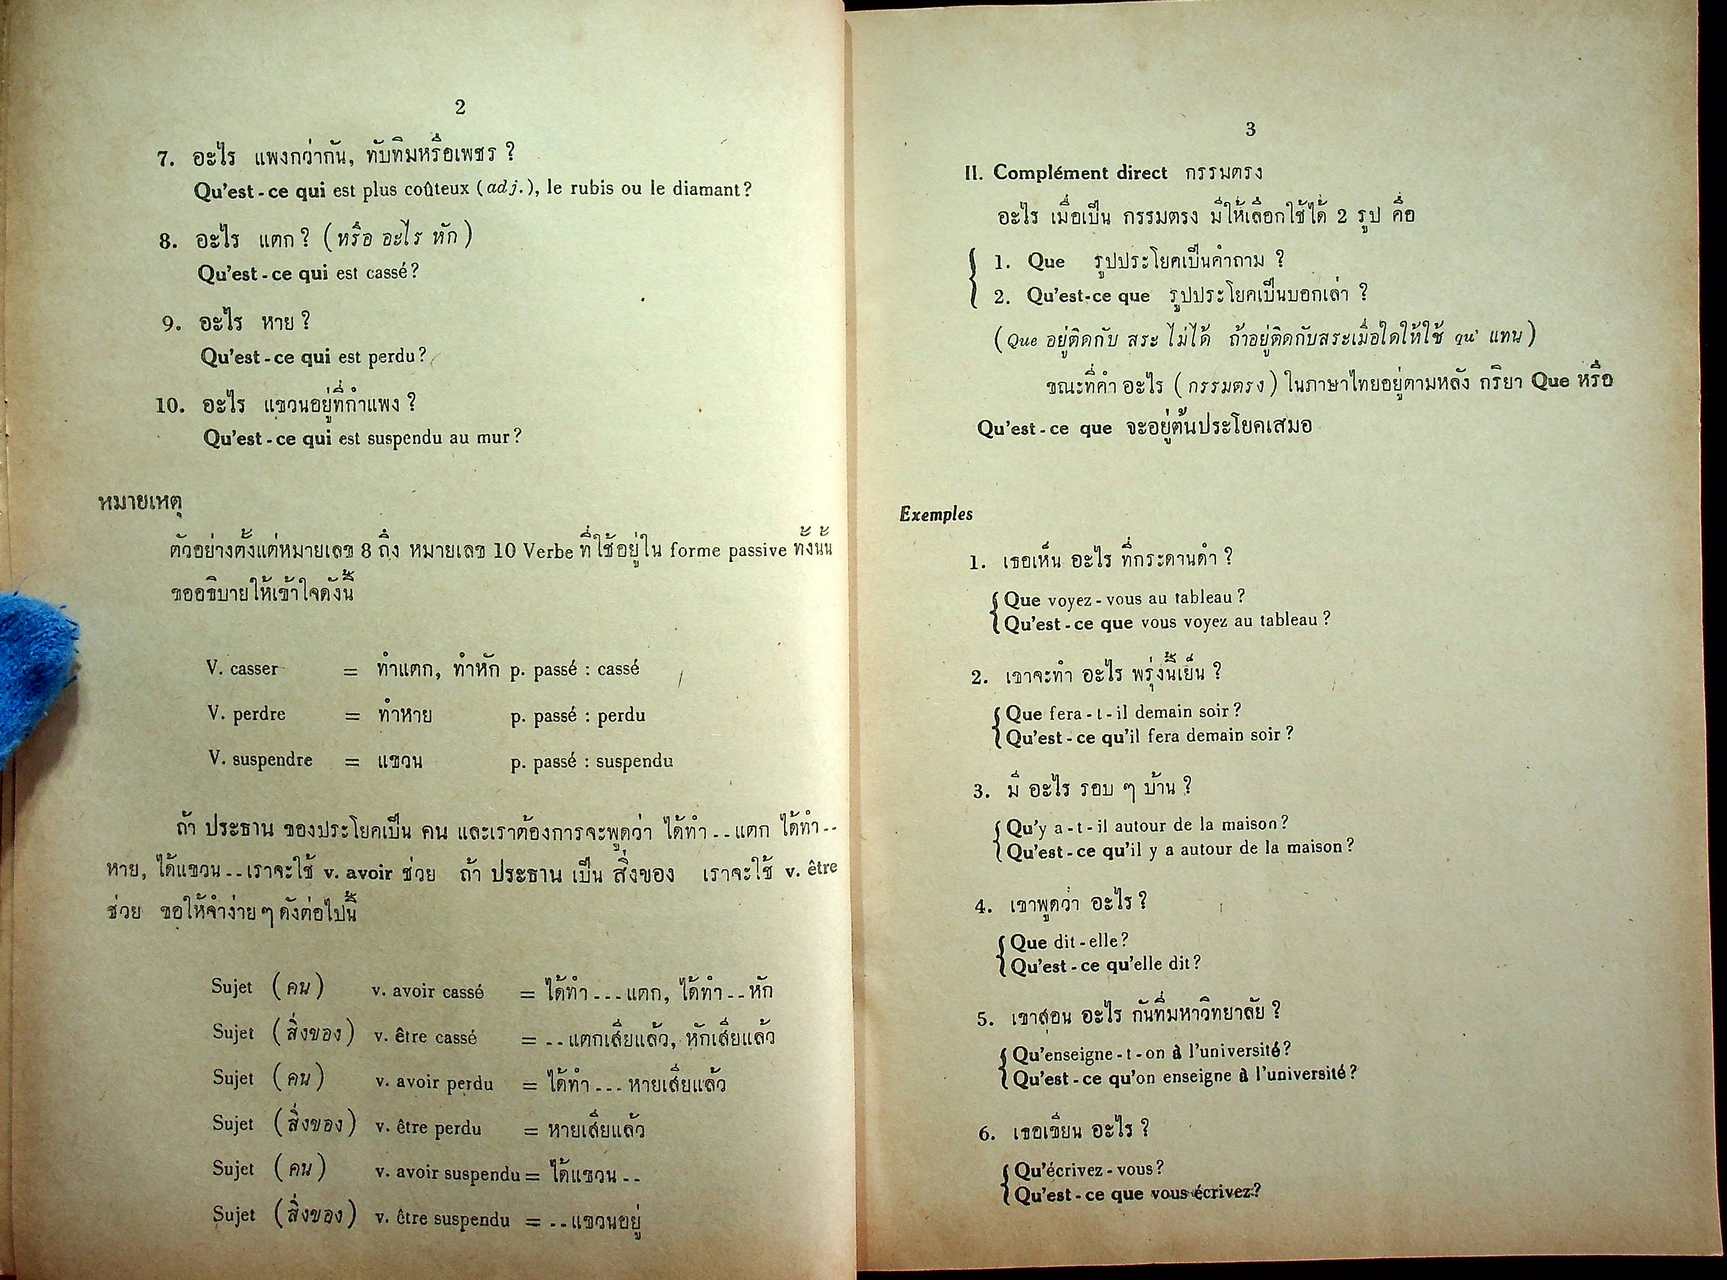 2
7. อะไร แพงกว่ากัน, ทับทิมหรือเพชร ?
Qu'est-ce qui est plus coûteux (adj.), le rubis ou le diamant?
8. อะไร แตก ? (หรือ อะไร หัก)
Qu'est-ce qui est cassé?
9. อะไร หาย ?
Qu'est-ce qui est perdu?
10. อะไร แขวนอยู่ที่กำแพง ?
Qu'est-ce qui est suspendu au mur?
หมายเหตุ
ตัวอย่างตั้งแต่หมายเลข 8 ถึง หมายเลข 10 Verbe ที่ใช้อยู่ใน forme passive ทั้งนั้น
ขออธิบายให้เข้าใจดังนี้
V. casser = ทำแตก, ทำหัก p. passé : cassé
V. perdre = ทำหาย p. passé : perdu
V. suspendre = แขวน p. passé : suspendu
ถ้า ประธาน ของประโยคเป็น คน และเราต้องการจะพูดว่า ได้ทำ..แตก ได้ทำ..
หาย, ได้แขวน..เราจะใช้ v. avoir ช่วย ถ้า ประธาน เป็น สิ่งของ เราจะใช้ v. être
ช่วย ขอให้จำง่าย ๆ ดังต่อไปนี้
Sujet (คน) v. avoir cassé = ได้ทำ...แตก, ได้ทำ..หัก
Sujet (สิ่งของ) v. être cassé = ..แตกเสียแล้ว, หักเสียแล้ว
Sujet (คน) v. avoir perdu = ได้ทำ...หายเสียแล้ว
Sujet (สิ่งของ) v. être perdu = หายเสียแล้ว
Sujet (คน) v. avoir suspendu = ได้แขวน..
Sujet (สิ่งของ) v. être suspendu = ..แขวนอยู่
3
II. Complément direct กรรมตรง
อะไร เมื่อเป็น กรรมตรง มีให้เลือกใช้ได้ 2 รูป คือ
1. Que รูปประโยคเป็นคำถาม ?
2. Qu'est-ce que รูปประโยคเป็นบอกเล่า ?
(Que อยู่ติดกับ สระ ไม่ได้ ถ้าอยู่ติดกับสระเมื่อใดให้ใช้ qu' แทน)
ขณะที่คำ อะไร (กรรมตรง) ในภาษาไทยอยู่ตามหลัง กริยา Que หรือ
Qu'est-ce que จะอยู่ต้นประโยคเสมอ
Exemples
1. เธอเห็น อะไร ที่กระดานดำ ?
Que voyez-vous au tableau?
Qu'est-ce que vous voyez au tableau?
2. เขาจะทำ อะไร พรุ่งนี้เย็น ?
Que fera-t-il demain soir?
Qu'est-ce qu'il fera demain soir?
3. มี อะไร รอบ ๆ บ้าน ?
Qu'y a-t-il autour de la maison?
Qu'est-ce qu'il y a autour de la maison?
4. เขาพูดว่า อะไร ?
Que dit-elle?
Qu'est-ce qu'elle dit?
5. เขาสอน อะไร กันที่มหาวิทยาลัย ?
Qu'enseigne-t-on à l'université?
Qu'est-ce qu'on enseigne à l'université?
6. เธอเขียน อะไร ?
Qu'écrivez-vous?
Qu'est-ce que vous écrivez?